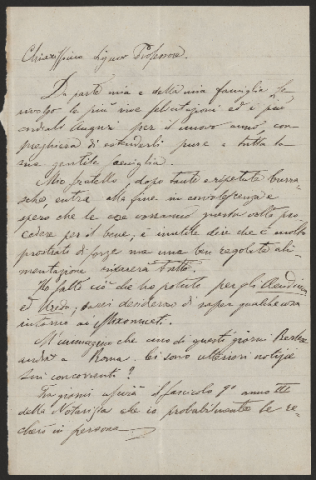 Chiarissimo Signor Professore.
Da parte mia e della mia famiglia Le
rivolgo le più vive felicitazioni ed i più
cordiali auguri per il nuovo anno, con
preghiera di estenderli pure a tutta la
sua gentile famiglia.
Mio fratello, dopo tante e ripetute burra-
sche, entra alla fine in convalescenza e
spero che le cose vorranno questa volta pro-
cedere per il bene; è inutile dire che è molto
prostrato di forze ma una ben regolata ali-
mentazione rimetterà tutto.
Ho fatto ciò che ho potuto, per gli
ed Uredo, ora si desidera di sapere qualche cosa
intorno ai Mixomiceti.
M'immagino che uno di questi giorni Berlese
verrà a Roma. Ci sono ulteriori notizie
sui concorrenti?
Fra giorni uscirà il fascicolo 1º anno III
della Notarisia che io probabilmente Le re-
cherò in persona.